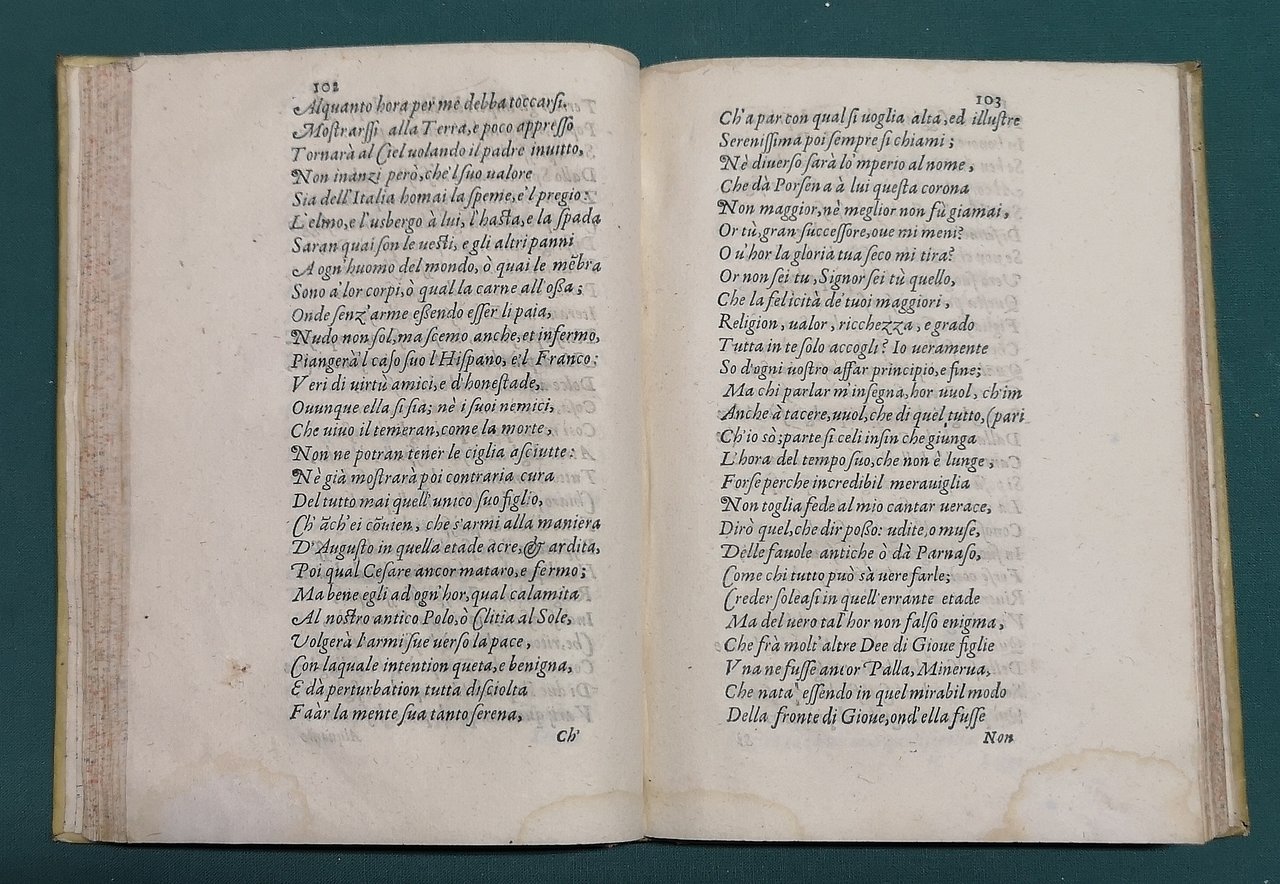 102
Alquanto hora per me debba toccarsi,
Mostrarssi alla Terra, e poco appresso
Tornarà al Ciel uolando il padre inuitto,
Non inanzi però, che'l suo ualore
Sia dell'Italia homai la speme, e'l pregio:
L'elmo, e l'usbergo à lui, l'hasta, e la spada
Saran quai son le uesti, e gli altri panni
A ogn'huomo del mondo, ò quai le mẽbra
Sono a'lor corpi, ò qual la carne all'ossa;
Onde senz'arme essendo esser li paia,
Nudo non sol, ma scemo anche, et infermo,
Piangerà'l caso suo l'Hispano, e'l Franco:
Veri di uirtù amici, e d'honestade,
Ouunque ella si sia; nè i suoi nemici,
Che uiuo il temeran, come la morte,
Non ne potran tener le ciglia asciutte:
Nè già mostrarà poi contraria cura
Del tutto mai quell'unico suo figlio,
Ch'ãch'ei cõuien, che s'armi alla maniera
D'Augusto in quella etade acre, & ardita,
Poi qual Cesare ancor mataro, e fermo;
Ma bene egli ad ogn'hor, qual calamita
Al nostro antico Polo, ò Clitia al Sole,
Volgerà l'armi sue uerso la pace,
Con laquale intention queta, e benigna,
E dà perturbation tutta disciolta
Faàr la mente sua tanto serena,
Ch'
103
Ch'a par con qual si uoglia alta, ed illustre
Serenissima poi sempre si chiami;
Nè diuerso sarà lo'mperio al nome,
Che dà Porsena à lui questa corona
Non maggior, nè meglior non fù giamai,
Or tù, gran successore, oue mi meni?
O u'hor la gloria tua seco mi tira?
Or non sei tu, Signor sei tù quello,
Che la felicità de'tuoi maggiori,
Religion, ualor, ricchezza, e grado
Tutta in te solo accogli? Io ueramente
So d'ogni uostro affar principio, e fine;
Ma chi parlar m'insegna, hor uuol, ch'im
Anche à tacere, uuol, che di quel tutto, (pari
Ch'io sò; parte si celi insin che giunga
L'hora del tempo suo, che non è lunge,
Forse perche incredibil merauiglia
Non toglia fede al mio cantar uerace,
Dirò quel, che dir posso: udite, o muse,
Delle fauole antiche ò dà Parnaso,
Come chi tutto può sà uere farle;
Creder soleasi in quell'errante etade
Ma del uero tal'hor non falso enigma,
Che frà molt'altre Dee di Gioue figlie
Vna ne fusse ancor Palla, Minerua,
Che nata essendo in quel mirabil modo
Della fronte di Gioue, ond'ella fusse
Non